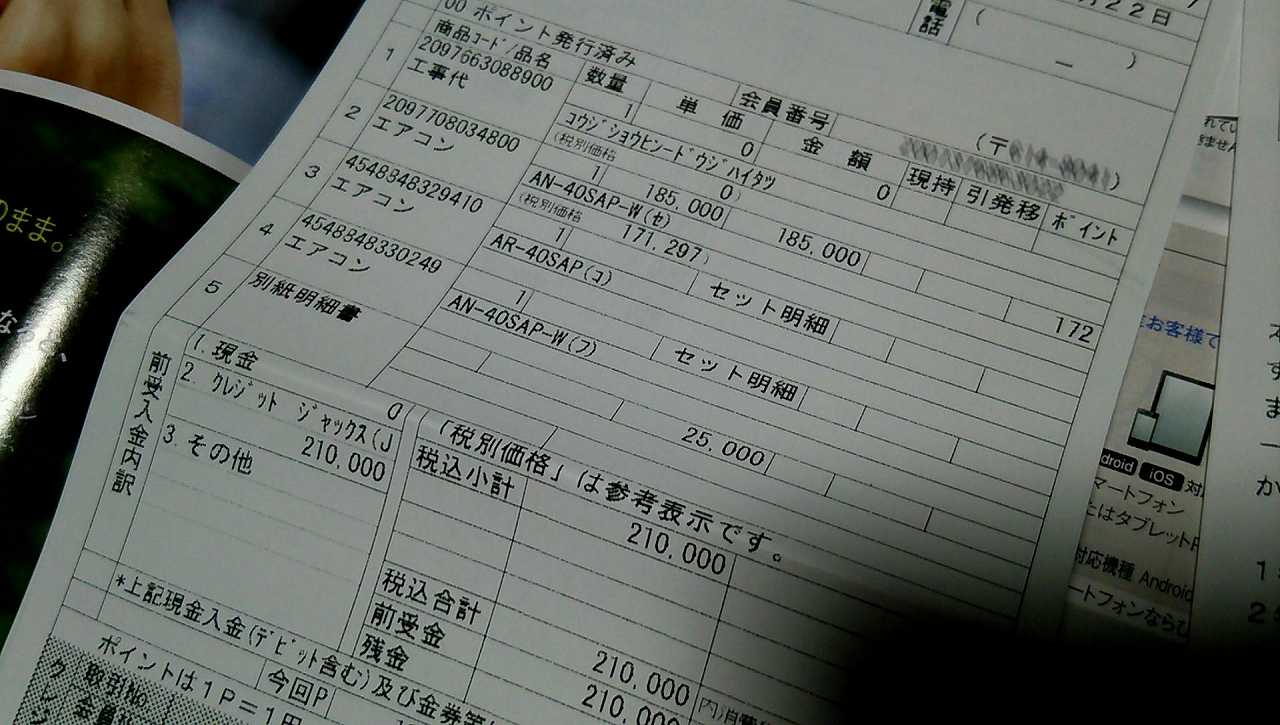 22日
電話 ( — )
00 ポイント発行済み
商品コード/品名 数量 単価 金額 現持 引発移 ポイント
会員番号 (〒 )
1 2097663088900 1 0 0
工事代 コウジショウヒンードウジハイタツ
(税別価格 0)
2 2097708034800 1 185,000 185,000 172
エアコン AN-40SAP-W(セ)
(税別価格 171,297)
3 4548848329410 1 セット明細
エアコン AR-40SAP(コ)
4 4548848330249 1 セット明細
エアコン AN-40SAP-W(フ)
5 別紙明細書 25,000
前受入金内訳
1. 現金 0
2. クレジット ジャックス(J
210,000
3. その他
「税別価格」は参考表示です。
税込小計 210,000
税込合計 210,000
前受金 210,000
残金
*上記現金入金(デビット含む)及び金券等
ポイントは1P=1円
今回P
取引No
のまま。
お客様で
droid iOS 対
マートフォン
たはタブレット
対応機種 Android
ートフォンならび